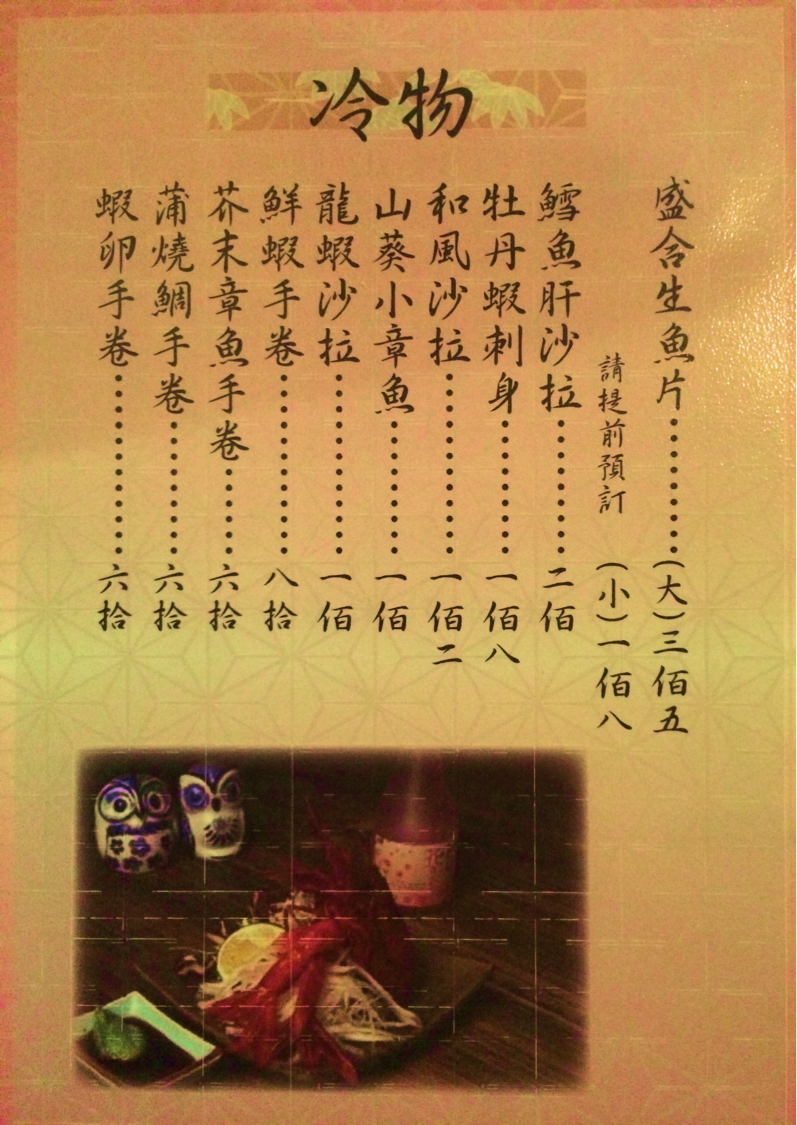 冷物
盛合生魚片…………(大)三佰五
請提前預訂 (小)一佰八
鱈魚肝沙拉…………二佰
牡丹蝦刺身…………一佰八
和風沙拉…………一佰二
山葵小章魚…………一佰
龍蝦沙拉…………一佰
鮮蝦手卷…………八拾
芥末章魚手卷…………六拾
蒲燒鯛手卷…………六拾
蝦卵手卷…………六拾